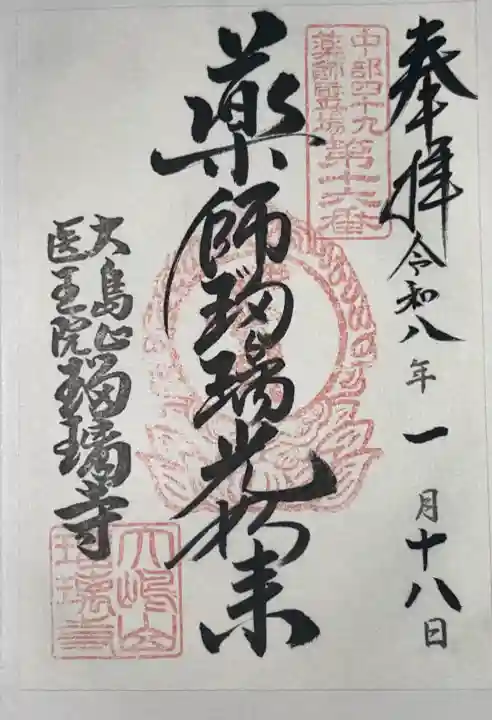 奉拝
令和八年一月十八日
中部四十九
薬師霊場
第十六番
薬師瑠璃光如来
大島山瑠璃寺
医王院
大嶋山
瑠璃寺